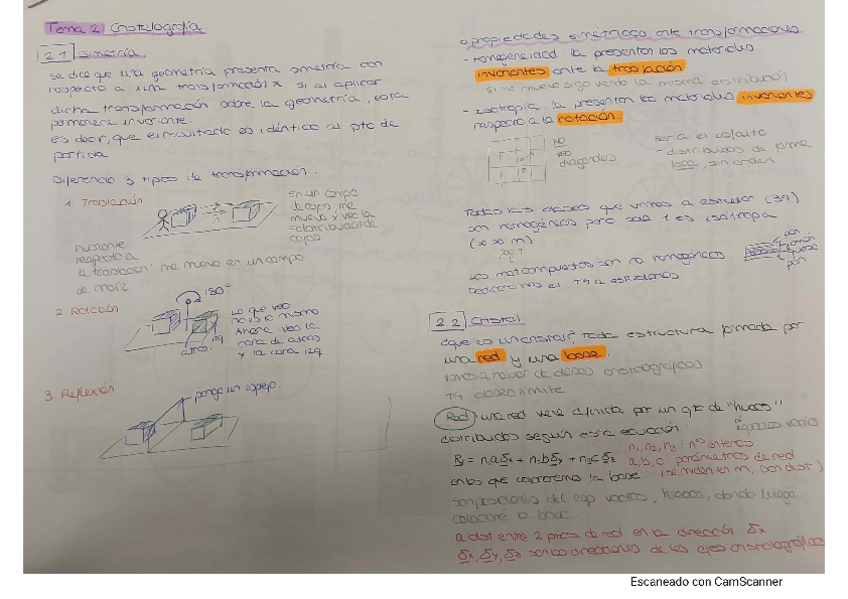 Tema 2: Cristalografía
2.1 Simetría.
se dice que una geometría presenta simetría con
respecto a una transformación x si al aplicar
dicha transformación sobre la geometría, esta
permanece invariante.
es decir, que el resultado es idéntico al pto de
partida
Diferencio 3 tipos de transformación:
1. Traslación
En un campo
de cajas, me
muevo y veo la
distribución de
cajas
respecto a
la traslación: me muevo en un campo
de maíz.
2. Rotación
180º
Lo que veo
no es lo mismo
Ahora veo la
cara de atrás
y la cara izq
atrás
izq
3. Reflexión
pongo un espejo.
propiedades simétricas ante transformaciones
- homogeneidad: la presentan los materiales
invariantes ante la traslación
si me muevo sigo viendo la misma distribución
- isotropía: la presentan los materiales invariantes
respecto a la rotación.
NO
veo
diagonales
sería el asfalto.
- distribuidos de forma
loca, sin orden
Todas las clases que vamos a estudiar (32)
son homogéneas pero solo 1 es isótropa
(∞ ∞ m)
Los mat compuestos son no homogéneos
pan
jamón
queso
pan
Dedicaremos el T4 a estudiarlos
2.2 Cristal
¿que es un cristal? Toda estructura formada por
una red y una base.
vamos a hablar de clases cristalográficas
T4 clases límite
Red: una red viene definida por un cjto de "huecos"
espacios vacíos
distribuidos según esta ecuación:
n₁, n₂, n₃: nº enteros
R = n₁a δx + n₂b δy + n₃c δz
a, b, c: parámetros de red
(se miden en m, son dist)
en los que colocaremos la base.
son posiciones del esp vacías, huecos, donde luego
colocaré la base
a dist entre 2 ptos de red en la dirección δx
δx, δy, δz son las direcciones de los ejes cristalográficos
Escaneado con CamScanner